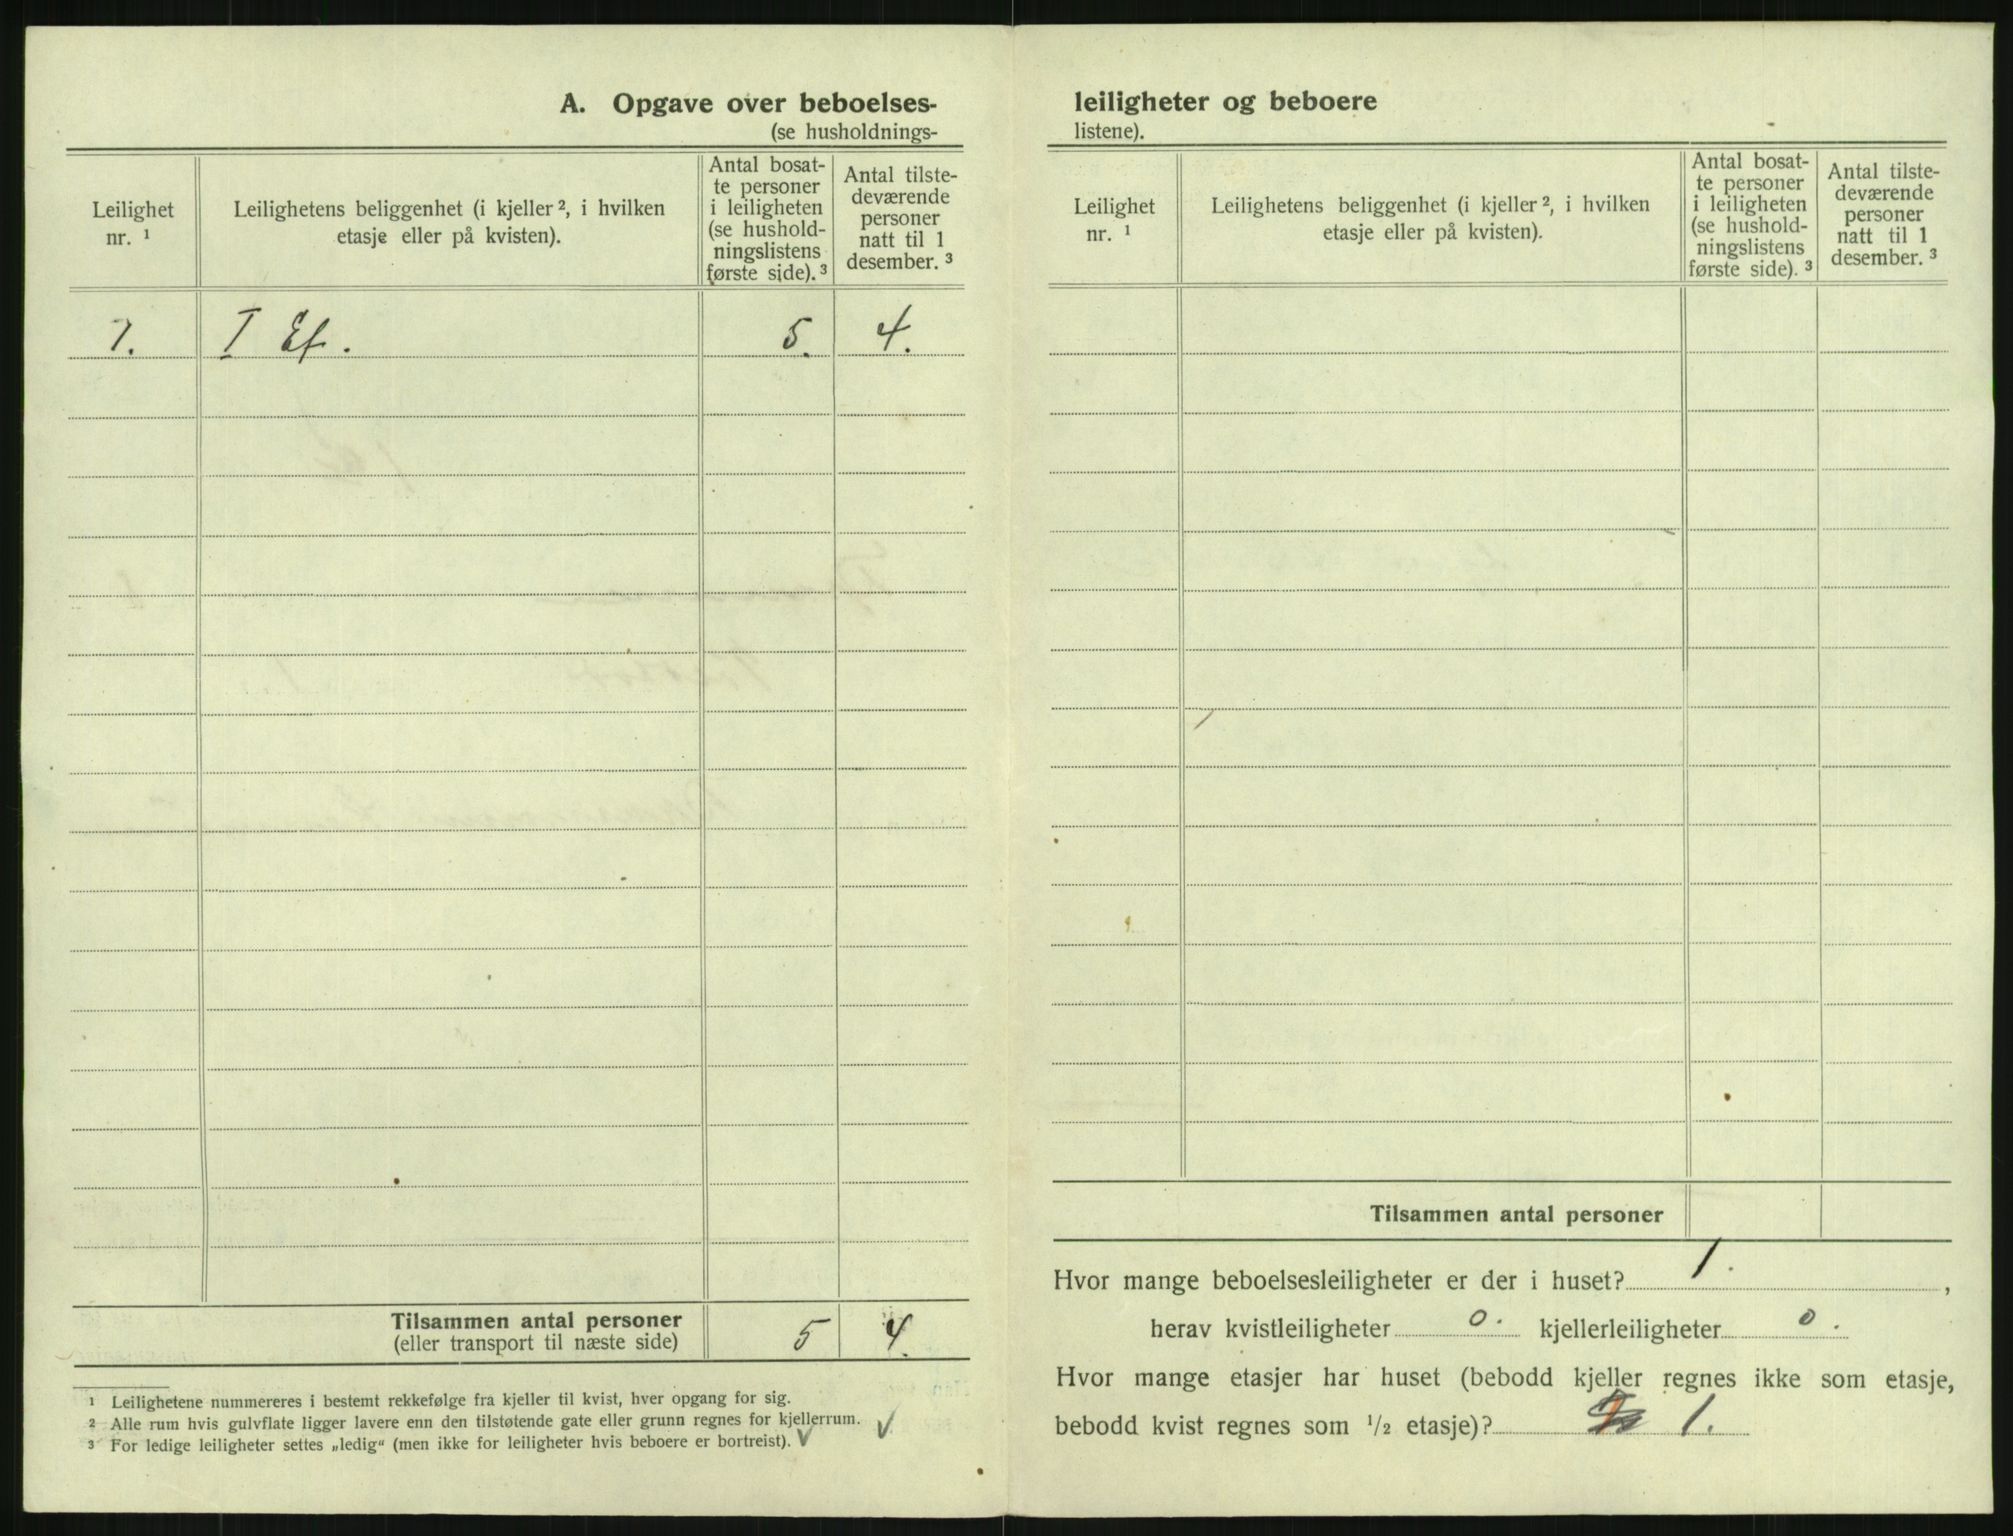 A. Opgave over beboelses-
(se husholdnings-
Leilighet
nr. ¹
Leilighetens beliggenhet (i kjeller ², i hvilken
etasje eller på kvisten).
Antal bosat-
te personer
i leiligheten
(se hushold-
ningslistens
første side). ³
Antal tilste-
deværende
personer
natt til 1
desember. ³
1. I Et. 5. 4.
Tilsammen antal personer 5 4.
(eller transport til næste side)
¹ Leilighetene nummereres i bestemt rekkefølge fra kjeller til kvist, hver opgang for sig.
² Alle rum hvis gulvflate ligger lavere enn den tilstøtende gate eller grunn regnes for kjellerrum.
³ For ledige leiligheter settes „ledig“ (men ikke for leiligheter hvis beboere er bortreist).
leiligheter og beboere
listene).
Leilighet
nr. ¹
Leilighetens beliggenhet (i kjeller ², i hvilken
etasje eller på kvisten).
Antal bosat-
te personer
i leiligheten
(se hushold-
ningslistens
første side). ³
Antal tilste-
deværende
personer
natt til 1
desember. ³
Tilsammen antal personer
Hvor mange beboelsesleiligheter er der i huset? 1.,
herav kvistleiligheter 0. kjellerleiligheter 0.
Hvor mange etasjer har huset (bebodd kjeller regnes ikke som etasje,
bebodd kvist regnes som ½ etasje)? 1.